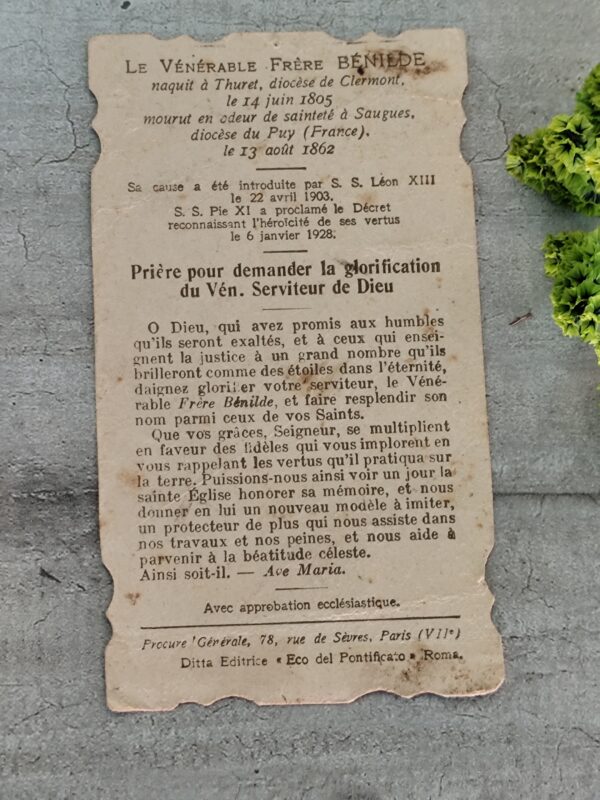 LE VÉNÉRABLE FRÈRE BÉNILDE
naquit à Thuret, diocèse de Clermont,
le 14 juin 1805
mourut en odeur de sainteté à Saugues,
diocèse du Puy (France),
le 13 août 1862
Sa cause a été introduite par S. S. Léon XIII
le 22 avril 1903.
S. S. Pie XI a proclamé le Décret
reconnaissant l'héroïcité de ses vertus
le 6 janvier 1928.
Prière pour demander la glorification
du Vén. Serviteur de Dieu
O Dieu, qui avez promis aux humbles
qu'ils seront exaltés, et à ceux qui ensei-
gnent la justice à un grand nombre qu'ils
brilleront comme des étoiles dans l'éternité,
daignez glorifier votre serviteur, le Véné-
rable Frère Bénilde, et faire resplendir son
nom parmi ceux de vos Saints.
Que vos grâces, Seigneur, se multiplient
en faveur des fidèles qui vous implorent en
vous rappelant les vertus qu'il pratiqua sur
la terre. Puissions-nous ainsi voir un jour la
sainte Église honorer sa mémoire, et nous
donner en lui un nouveau modèle à imiter,
un protecteur de plus qui nous assiste dans
nos travaux et nos peines, et nous aide à
parvenir à la béatitude céleste.
Ainsi soit-il. — Ave Maria.
Avec approbation ecclésiastique.
Procure Générale, 78, rue de Sèvres, Paris (VIIe)
Ditta Editrice « Eco del Pontificato » Roma.